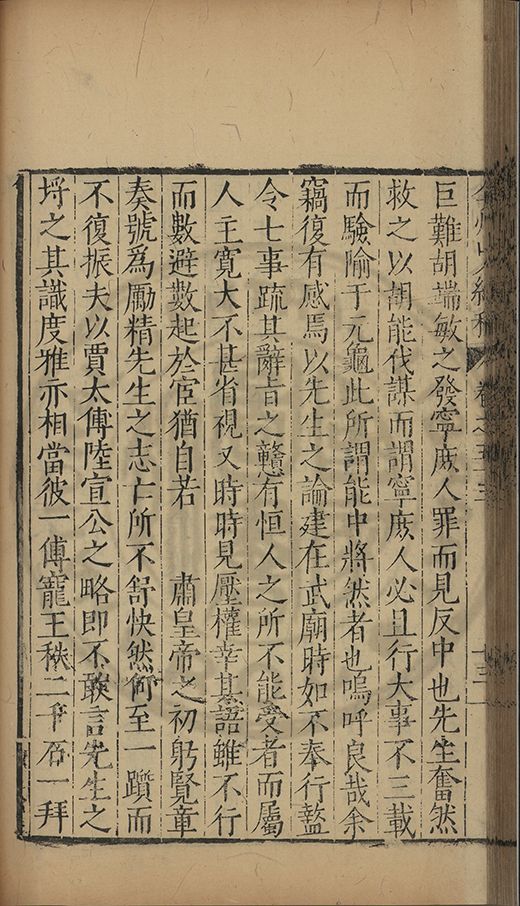 巨難胡端敏之發寧庶人罪而見反中也先生奮然
救之以胡能伐謀而謂寧庶人必且行大事不三載
而驗隃于元龜此所謂能中將然者也嗚呼良哉余
竊復有感焉以先生之論建在武廟時如不奉行盭
令七事疏其辭旨之戇有恒人之所不能受者而屬
人主寛大不甚省視又時時見壓權幸其語雖不行
而數避數起於宦猶自若　　肅皇帝之初躬覽章
奏號為勵精先生之志亡所不舒快然何至一躓而
不復振夫以賈太傅陸宣公之略即不敢言先生之
埒之其識度雅亦相當彼一傅寵王秩二千石一拜